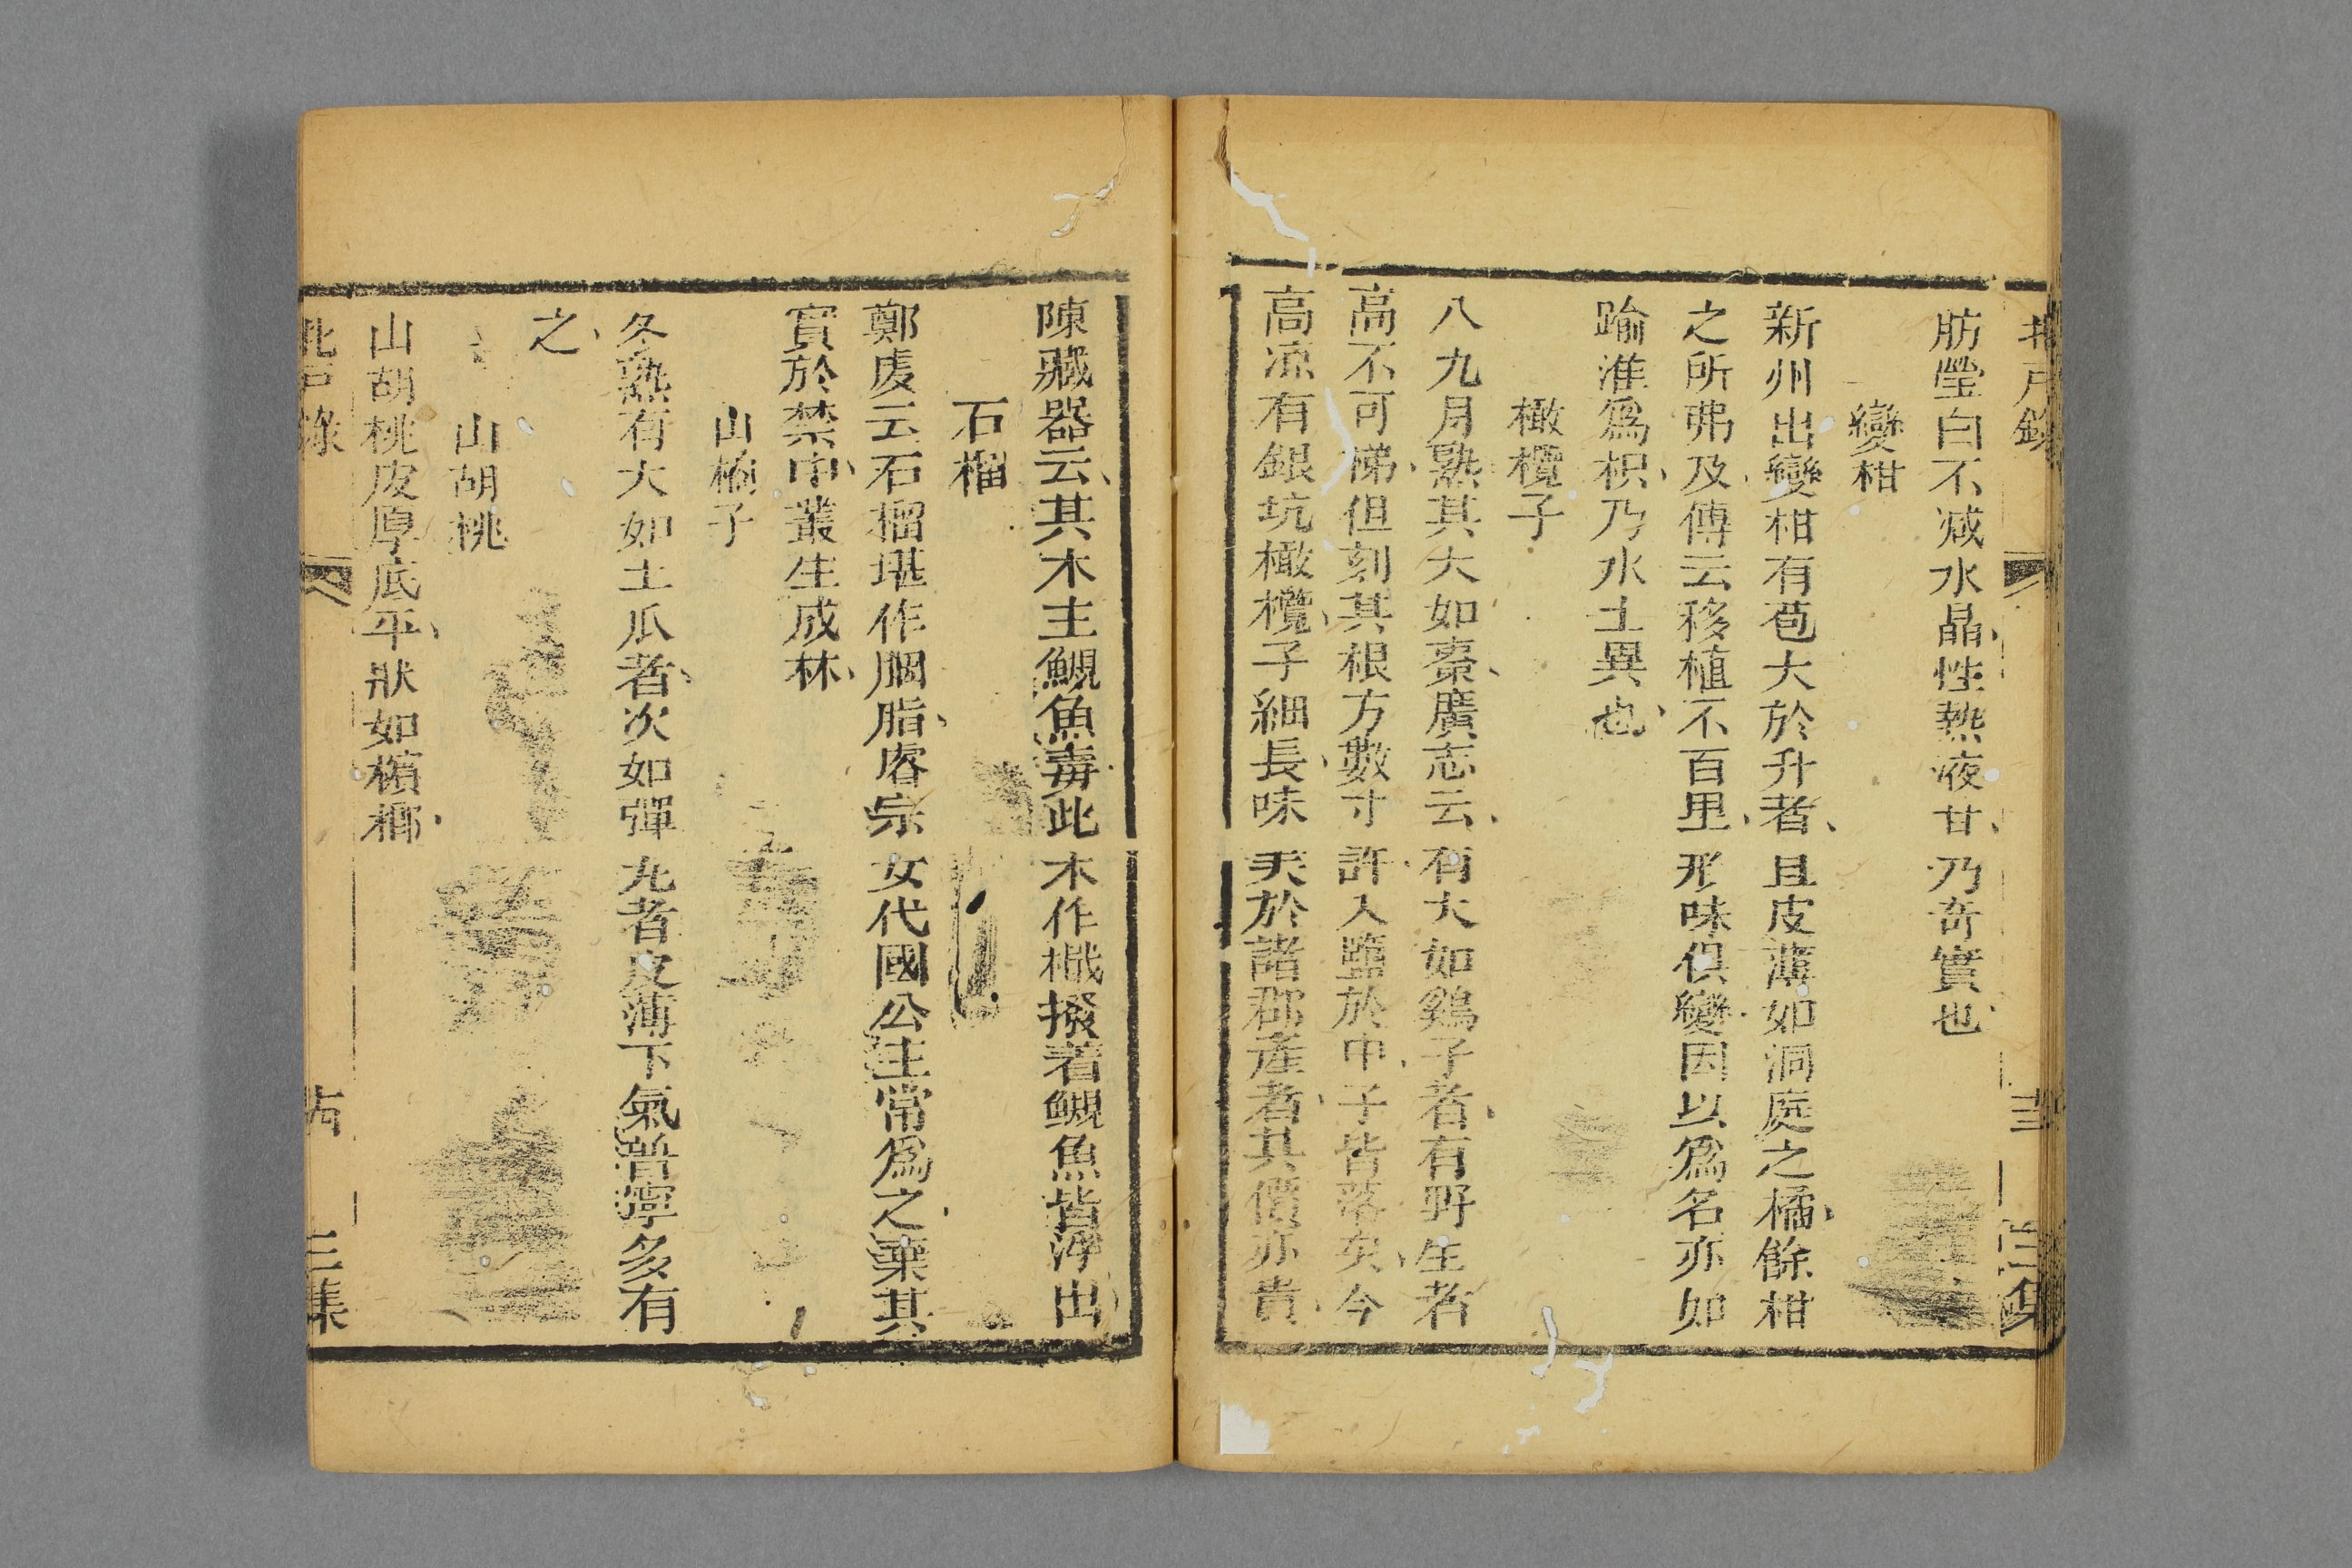 北戶錄
十三
三集
肪瑩白不減水晶性熱液甘乃奇實也
變柑
新州出變柑有苞大於升者且皮薄如洞庭之橘餘柑
之所弗及傳云移植不百里形味俱變因以爲名亦如
踰淮爲枳乃水土異也
橄欖子
八九月熟其大如棗廣志云有大如鷄子者有野生者
高不可梯但刻其根方數寸許入鹽於中子皆落矣今
高凉有銀坑橄欖子細長味美於諸郡産者其價亦貴
陳藏器云其木主鯢魚毒此木作檝撥着鯢魚皆浮出
石榴
鄭虔云石榴堪作胭脂睿宗女代國公主常爲之棄其
實於禁中叢生成林
山橘子
冬熟有大如土瓜者次如彈丸者皮薄下氣普寧多有
之
山胡桃
山胡桃皮厚底平狀如檳榔
北戶錄
十四
三集